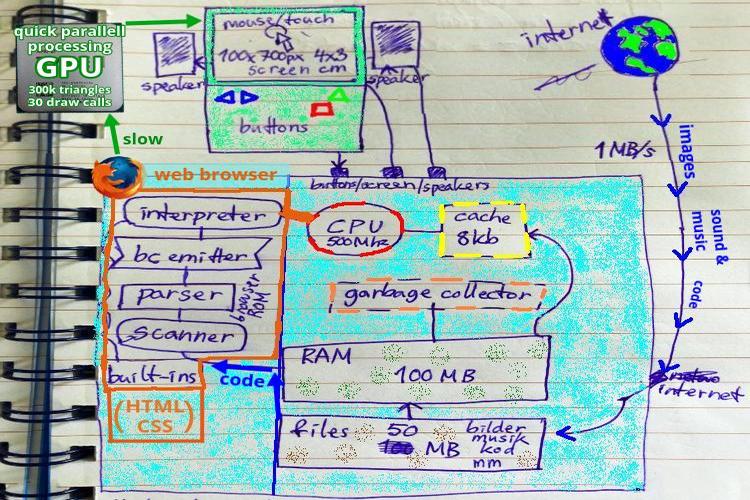 quick parallell
processing
GPU
300k triangles
30 draw calls
slow
mouse/touch
100x700px 4x3
screen cm
speaker
speaker
buttons
internet
1 MB/s
images
sound &
music
code
internet
buttons/screen/speakers
web browser
interpreter
bc emitter
parser
scanner
browser
RAM
built-ins
(HTML
CSS)
code
CPU
500Mhz
cache
8kb
garbage collector
RAM
100 MB
files 50 MB
bilder
musik
kod
mm